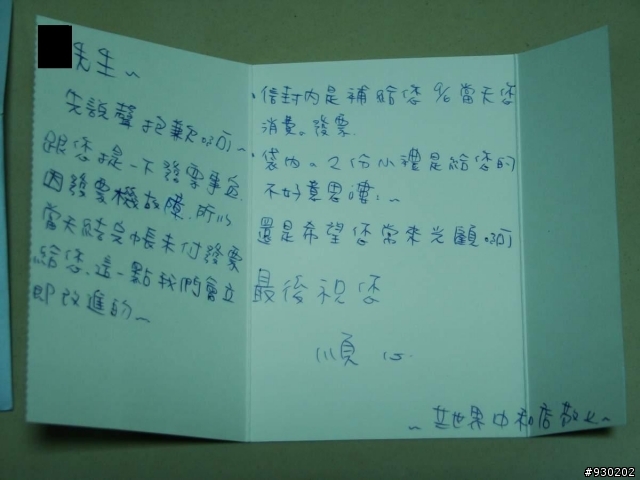 先生~
先說聲抱歉..呵~
跟您提一下發票事宜.
因發票機故障.所以
當天結完帳未付發票
給您.這一點我們會立
即改進的~
•信封內是補給您 9/6 當天您
消費の發票.
•袋內の2份小禮是給您的
不好意思嘍:~
還是希望您常來光顧..呵
最後祝您
順心.
~ 世界中和店敬上~
#930202